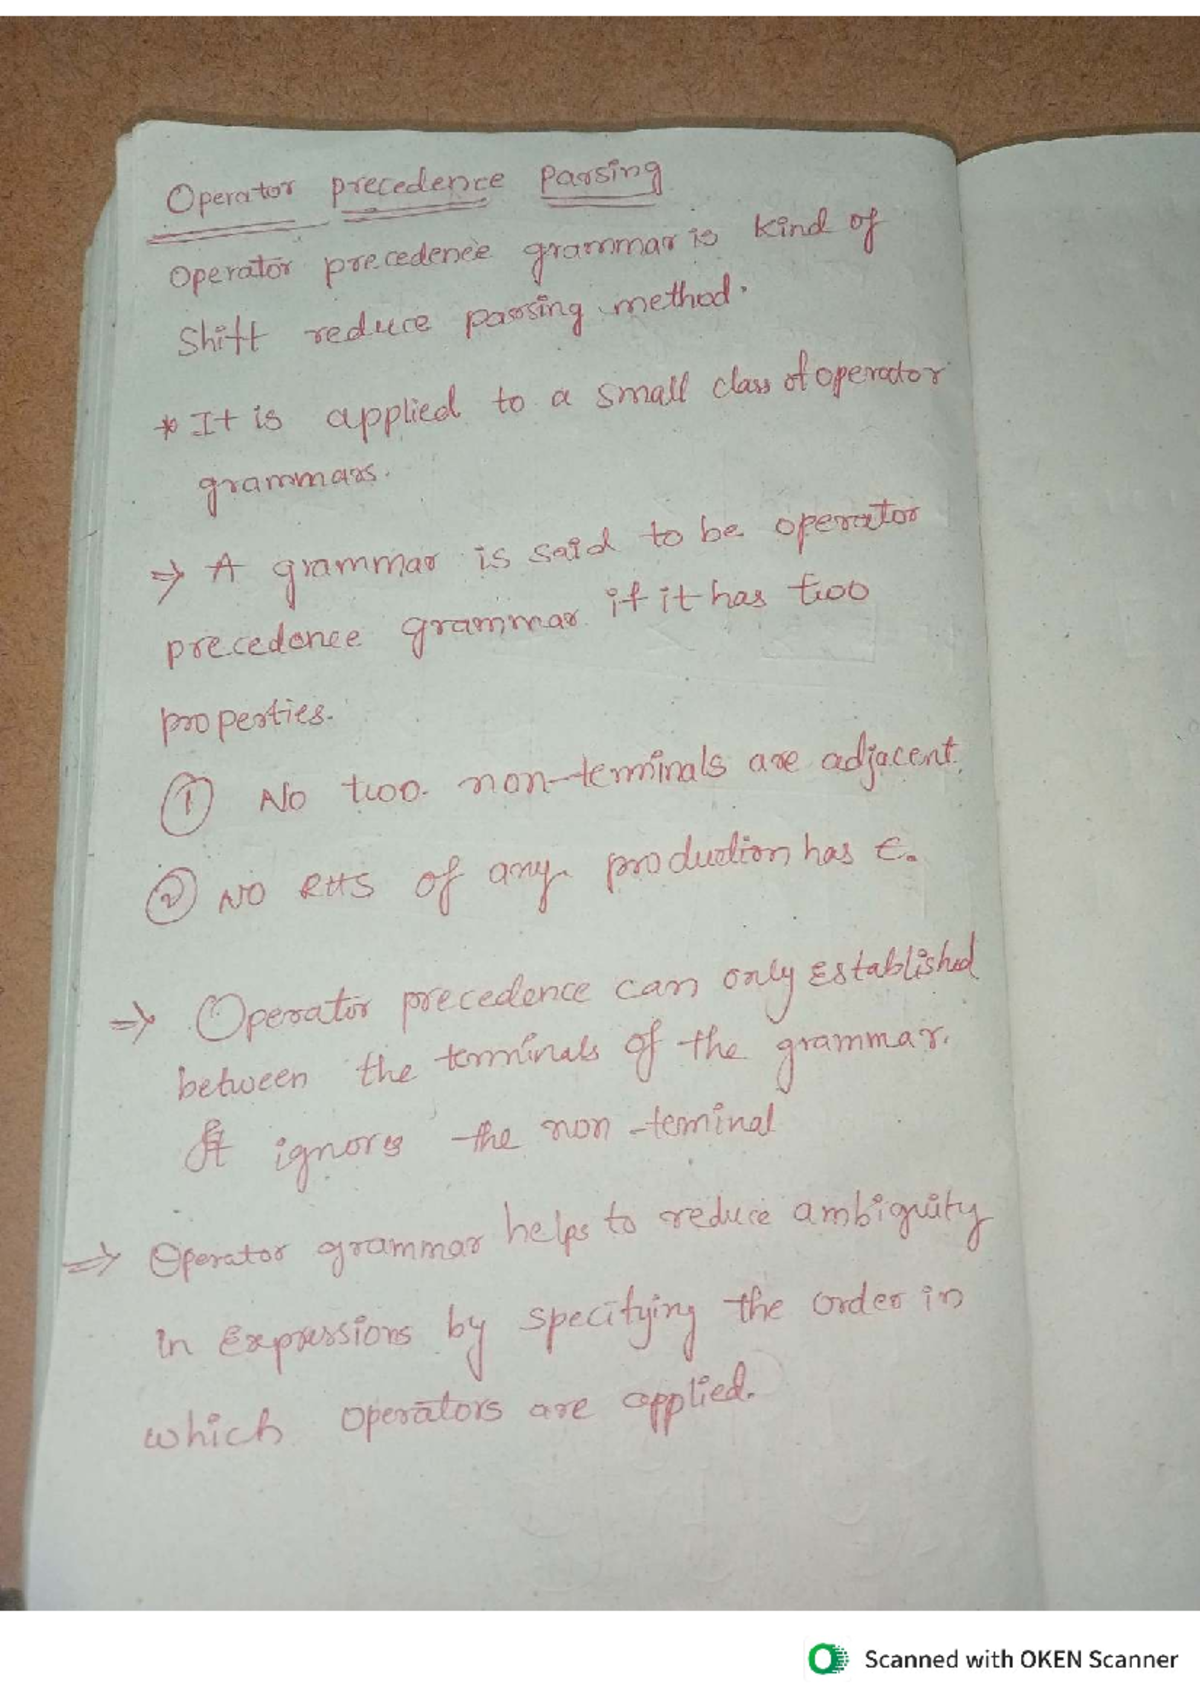 Operator precedence Parsing
Operator precedence grammar is kind of
Shift reduce parsing method.
* It is applied to a small class of operator
grammars.
⇒ A grammar is said to be operator
precedence grammar if it has two
properties.
① No two non-terminals are adjacent.
② NO RHS of any production has ε.
⇒ Operator precedence can only Established
between the terminals of the grammar.
It ignores the non-teminal
⇒ Operator grammar helps to reduce ambiguity
in Expressions by specifying the order in
which operators are applied.
Scanned with OKEN Scanner